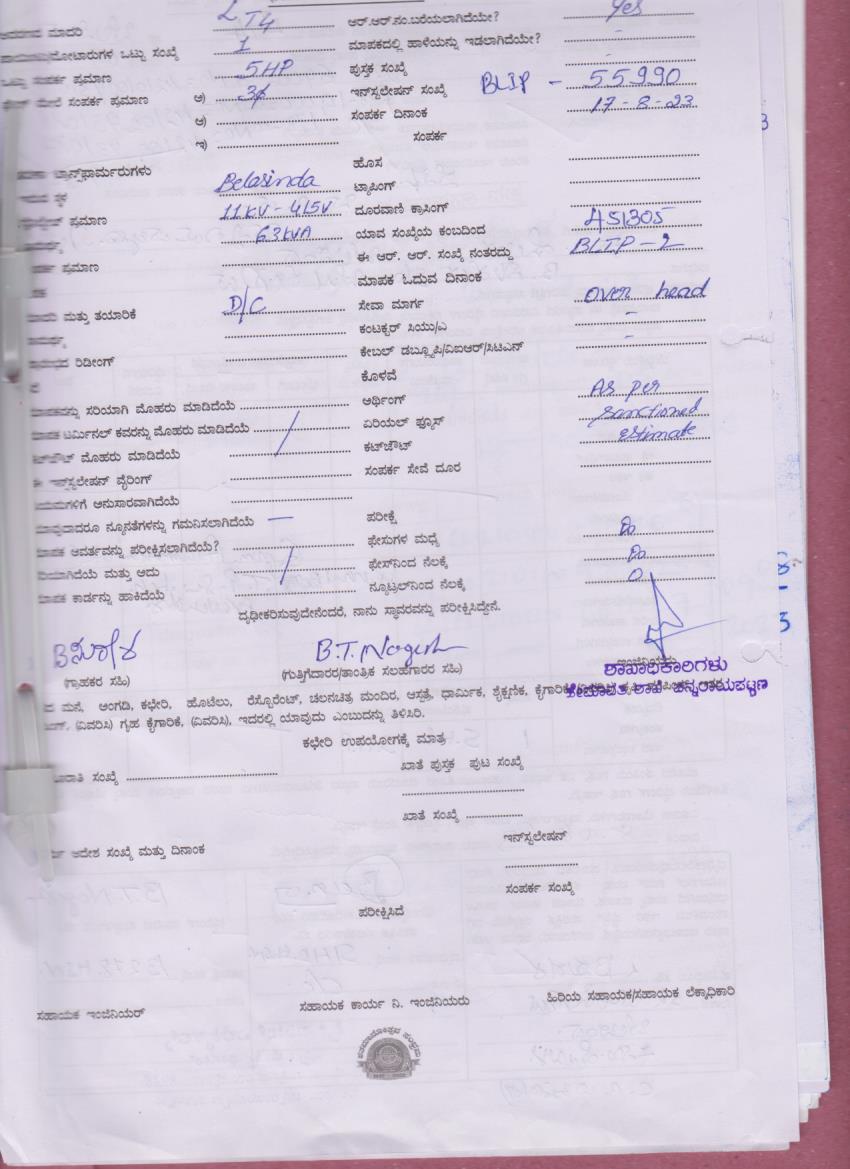 LT4 ಆರ್.ಆರ್.ನಂ.ಬರೆಯಲಾಗಿದೆಯೇ? Yes
ಒಟ್ಟು ಸಂಖ್ಯೆ 1 ಮಾಪಕದಲ್ಲಿ ಹಾಳೆಯನ್ನು ಇಡಲಾಗಿದೆಯೇ? -
ಸಂಪರ್ಕ ಪ್ರಮಾಣ 5HP ಪುಸ್ತಕ ಸಂಖ್ಯೆ -
ಮೇಲೆ ಸಂಪರ್ಕ ಪ್ರಮಾಣ ಅ) 3ϕ ಇನ್‌ಸ್ಟಲೇಷನ್ ಸಂಖ್ಯೆ BLIP - 55990
ಆ) ಸಂಪರ್ಕ ದಿನಾಂಕ 17-8-23
ಇ) ಸಂಪರ್ಕ
ಟ್ರಾನ್ಸ್‌ಫಾರ್ಮರುಗಳು ಹೊಸ
Belasinda ಟ್ಯಾಪಿಂಗ್
ಪ್ರಮಾಣ 11KV-415V ದೂರವಾಣಿ ಕ್ರಾಸಿಂಗ್
63KVA ಯಾವ ಸಂಖ್ಯೆಯ ಕಂಬದಿಂದ 451305
ಪ್ರಮಾಣ ಈ ಆರ್. ಆರ್. ಸಂಖ್ಯೆ ನಂತರದ್ದು BLIP-2
ಮಾಪಕ ಓದುವ ದಿನಾಂಕ
ಮತ್ತು ತಯಾರಿಕೆ D/C ಸೇವಾ ಮಾರ್ಗ over head
ಕಂಟಕ್ಟರ್ ಸಿಯು/ಎ -
ರಿಡೀಂಗ್ ಕೇಬಲ್ ಡಬ್ಲ್ಯೂಪಿ/ವಿಐಆರ್/ಸಿಟಿಎನ್ -
ಕೊಳವೆ
ಸರಿಯಾಗಿ ಮೊಹರು ಮಾಡಿದೆಯೆ ಅರ್ಥಿಂಗ್ As per
ಮಾಪಕ ಟರ್ಮಿನಲ್ ಕವರನ್ನು ಮೊಹರು ಮಾಡಿದೆಯೆ ಏರಿಯಲ್ ಫ್ಯೂಸ್ sanctioned
ಮೊಹರು ಮಾಡಿದೆಯೆ / ಕಟ್‌ಔಟ್ estimate
ಈ ಇನ್‌ಸ್ಟಲೇಷನ್ ವೈರಿಂಗ್ ಸಂಪರ್ಕ ಸೇವೆ ದೂರ
ಅನುಸಾರವಾಗಿದೆಯೆ
ನ್ಯೂನತೆಗಳನ್ನು ಗಮನಿಸಲಾಗಿದೆಯೆ — ಪರೀಕ್ಷೆ
ಮಾಪಕ ಆವರ್ತವನ್ನು ಪರೀಕ್ಷಿಸಲಾಗಿದೆಯೆ? ಫೇಸುಗಳ ಮಧ್ಯೆ
ಮತ್ತು ಅದು / ಫೇಸ್‌ನಿಂದ ನೆಲಕ್ಕೆ
ಮಾಪಕ ಕಾರ್ಡನ್ನು ಹಾಕಿದೆಯೆ ನ್ಯೂಟ್ರಲ್‌ನಿಂದ ನೆಲಕ್ಕೆ 0
ದೃಢೀಕರಿಸುವುದೇನೆಂದರೆ, ನಾನು ಸ್ಥಾವರವನ್ನು ಪರೀಕ್ಷಿಸಿದ್ದೇನೆ.
B.T.Nagesh
(ಗ್ರಾಹಕರ ಸಹಿ) (ಗುತ್ತಿಗೆದಾರರ/ತಾಂತ್ರಿಕ ಸಲಹೆಗಾರರ ಸಹಿ) ಶಾಖಾಧಿಕಾರಿಗಳು
ಮನೆ, ಅಂಗಡಿ, ಕಛೇರಿ, ಹೊಟೆಲು, ರೆಸ್ಟೊರೆಂಟ್, ಚಲನಚಿತ್ರ ಮಂದಿರ, ಆಸ್ಪತ್ರೆ, ಧಾರ್ಮಿಕ, ಶೈಕ್ಷಣಿಕ, ಶಾಖೆ ಚನ್ನರಾಯಪಟ್ಟಣ
(ವಿವರಿಸಿ) ಗೃಹ ಕೈಗಾರಿಕೆ, (ವಿವರಿಸಿ), ಇದರಲ್ಲಿ ಯಾವುದು ಎಂಬುದನ್ನು ತಿಳಿಸಿರಿ.
ಕಛೇರಿ ಉಪಯೋಗಕ್ಕೆ ಮಾತ್ರ
ಸಂಖ್ಯೆ ಖಾತೆ ಪುಸ್ತಕ ಪುಟ ಸಂಖ್ಯೆ
ಖಾತೆ ಸಂಖ್ಯೆ
ಆದೇಶ ಸಂಖ್ಯೆ ಮತ್ತು ದಿನಾಂಕ ಇನ್‌ಸ್ಟಲೇಷನ್
ಸಂಪರ್ಕ ಸಂಖ್ಯೆ
ಪರೀಕ್ಷಿಸಿದೆ
ಸಹಾಯಕ ಇಂಜಿನಿಯರ್ ಸಹಾಯಕ ಕಾರ್ಯ ನಿ. ಇಂಜಿನಿಯರು ಹಿರಿಯ ಸಹಾಯಕ/ಸಹಾಯಕ ಲೆಕ್ಕಾಧಿಕಾರಿ